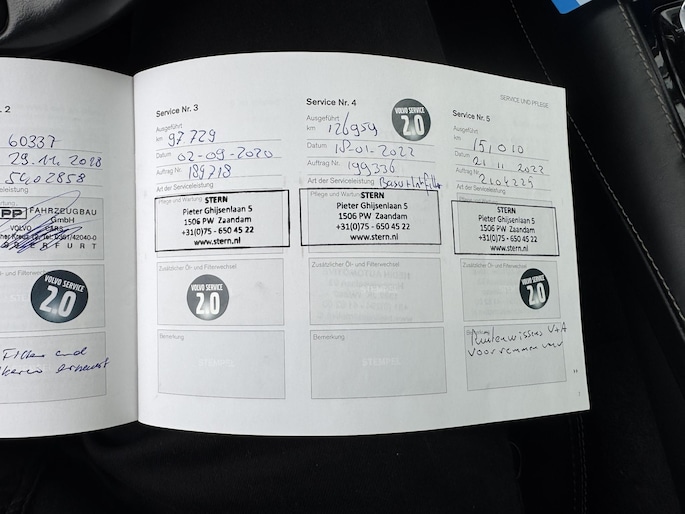 . 2
60337
5402858
eistung
PP FAHRZEUGBAU
GmbH
VOLVO CARS
ERFURT
Öl- und Filterwechsel
VOLVO SERVICE
2.0
Filter und
erneuert
Service Nr. 3
Ausgeführt
km 97.729
Datum 02-09-2020
Auftrag Nr. 189718
Art der Serviceleistung
Pflege und Wartung
STERN
Pieter Ghijsenlaan 5
1506 PW Zaandam
+31(0)75 - 650 45 22
www.stern.nl
Zusätzlicher Öl- und Filterwechsel
VOLVO SERVICE
2.0
Bemerkung
STEMPEL
Service Nr. 4
Ausgeführt
km 126959
VOLVO SERVICE
2.0
Datum 18-01-2022
Auftrag Nr. 198336
Art der Serviceleistung
Pflege und Wartung
STERN
Pieter Ghijsenlaan 5
1506 PW Zaandam
+31(0)75 - 650 45 22
www.stern.nl
Zusätzlicher Öl- und Filterwechsel
Bemerkung
STEMPEL
SERVICE UND PFLEGE
Service Nr. 5
Ausgeführt
km 151010
Datum 21 11 2022
Auftrag Nr. 2104229
Art der Serviceleistung
STERN
Pieter Ghijsenlaan 5
1506 PW Zaandam
+31(0)75 - 650 45 22
www.stern.nl
Zusätzlicher Öl- und Filterwechsel
VOLVO SERVICE
2.0
Bemerkung
Ruitenwissers V+A